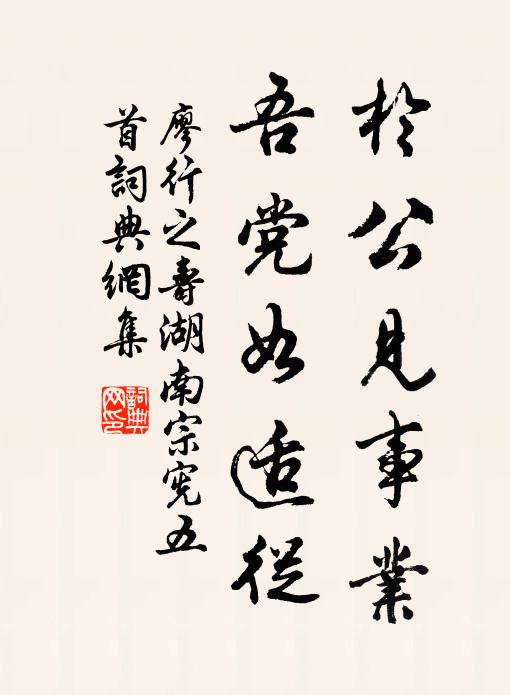 於公見事業
吾党如适從
廖行之壽湖南宗宪五
首詞典網集
詞典
网印